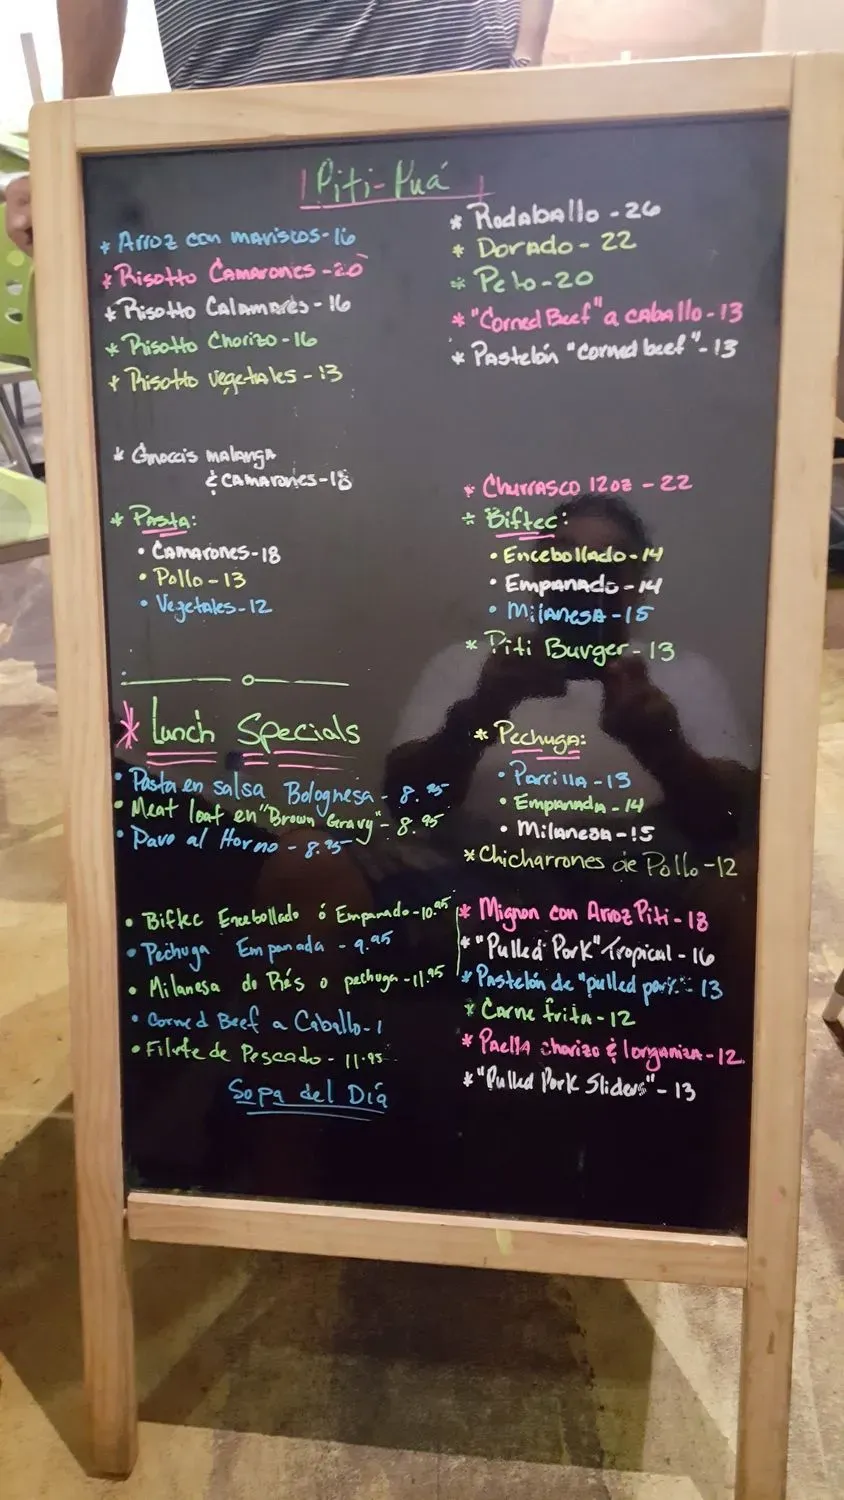 Piti-Puá
* Arroz con mariscos-16
* Risotto Camarones-20
* Risotto Calamares-16
* Risotto Chorizo-16
* Risotto vegetales-13
* Gnoccis malanga
& camarones-18
* Pasta:
• Camarones-18
• Pollo-13
• Vegetales-12
* Lunch Specials
• Pasta en salsa Bolognesa - 8.95
• Meat loaf en "Brown Gravy" - 8.95
• Pavo al Horno - 8.95
• Biftec Encebollado ó Empanado-10.95
• Pechuga Empanada - 9.95
• Milanesa de Rés o pechuga-11.95
• Corned Beef a Caballo-1
• Filete de Pescado - 11.95
Sopa del Día
* Rodaballo-26
* Dorado-22
* Peto-20
* "Corned Beef" a caballo-13
* Pastelón "corned beef"-13
* Churrasco 12oz-22
* Biftec:
• Encebollado-14
• Empanado-14
• Milanesa-15
* Piti Burger-13
* Pechuga:
• Parrilla-13
• Empanada-14
• Milanesa-15
* Chicharrones de Pollo-12
* Mignon con Arroz Piti-18
* "Pulled Pork" Tropical-16
* Pastelón de "pulled pork"-13
* Carne frita-12
* Paella chorizo & longaniza-12
* "Pulled Pork Sliders"-13